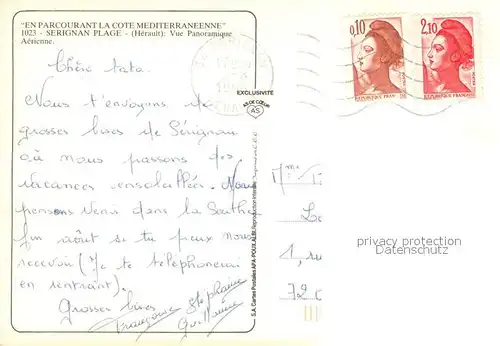 "EN PARCOURANT LA COTE MEDITERRANEENNE"
1023 - SERIGNAN PLAGE - (Hérault): Vue Panoramique
Aérienne.
Chère tata.
Nous t'envoyons de
grosses bises de Sérignan
où nous passons des
vacances ensoleillées. Nous
pensons venir dans la Sarthe
fin août si tu peux nous
recevoir (Je te telephonerai
en rentrant).
Grosses bises
Françoise Stéphanie
Guillaume
EXCLUSIVITÉ
AS DE CŒUR
AS
S.A. Cartes Postales APA-POUX ALBI. Reproduction interdite
0,10
REPUBLIQUE FRANÇAISE
2,10
REPUBLIQUE FRANÇAISE
Mme
1,
72
privacy protection
Datenschutz